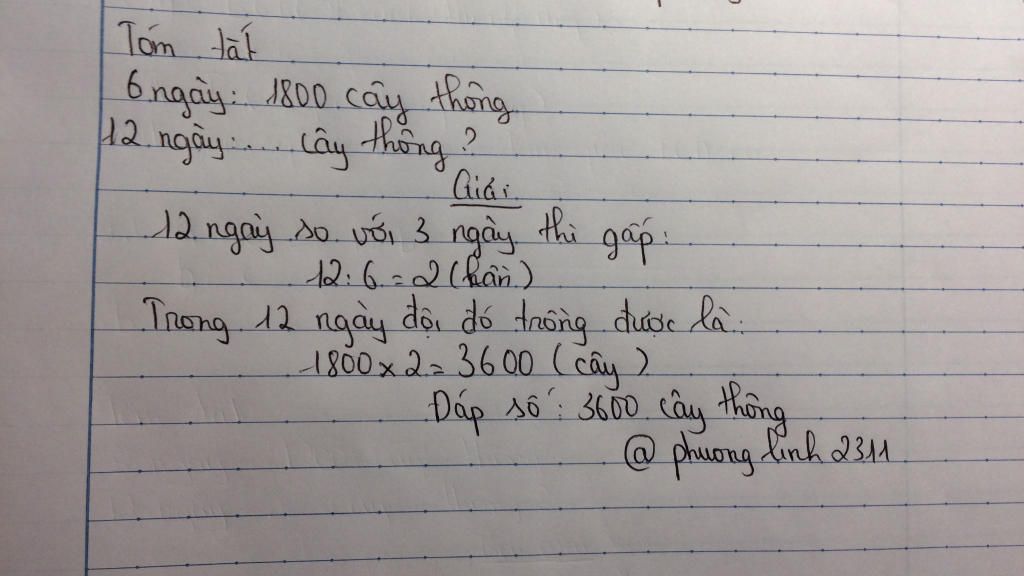 Tóm tắt
6 ngày: 1800 cây thông
12 ngày:... cây thông?
Giải
12 ngày so với 3 ngày thì gấp:
12 : 6 = 2 (lần)
Trong 12 ngày đội đó trồng được là:
1800 x 2 = 3600 (cây)
Đáp số: 3600 cây thông
@ phuong linh 2311